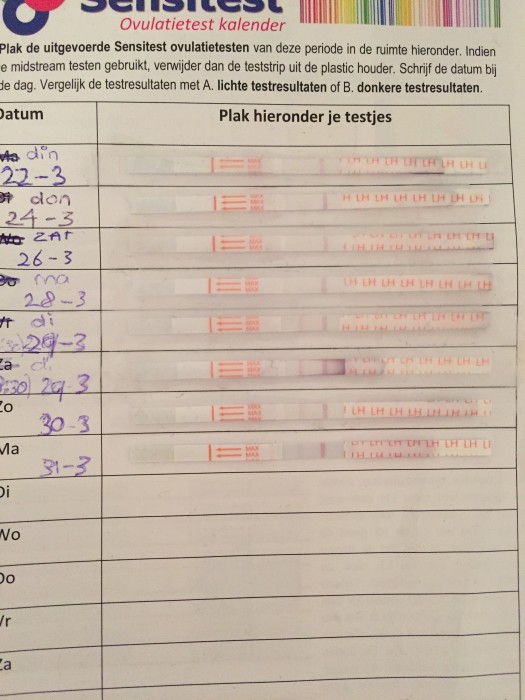 Sensitest
Ovulatietest kalender
Plak de uitgevoerde Sensitest ovulatietesten van deze periode in de ruimte hieronder. Indien
e midstream testen gebruikt, verwijder dan de teststrip uit de plastic houder. Schrijf de datum bij
de dag. Vergelijk de testresultaten met A. lichte testresultaten of B. donkere testresultaten.
Datum Plak hieronder je testjes
Ma din
22-3 MAX LH LH LH LH LH LH
don
24-3 MAX H LH LH LH LH LH LH
Wo ZAT
26-3 MAX LH LH LH LH LH
Do ma
28-3 MAX LH LH LH LH LH LH LH
Vr di
29-3 MAX LH LH LH LH LH LH
Za di
:30) 29-3 MAX LH LH LH LH LH
Zo
30-3 MAX LH LH LH LH LH LH
Ma
31-3 MAX LH LH LH LH
Di
Wo
Do
Vr
Za